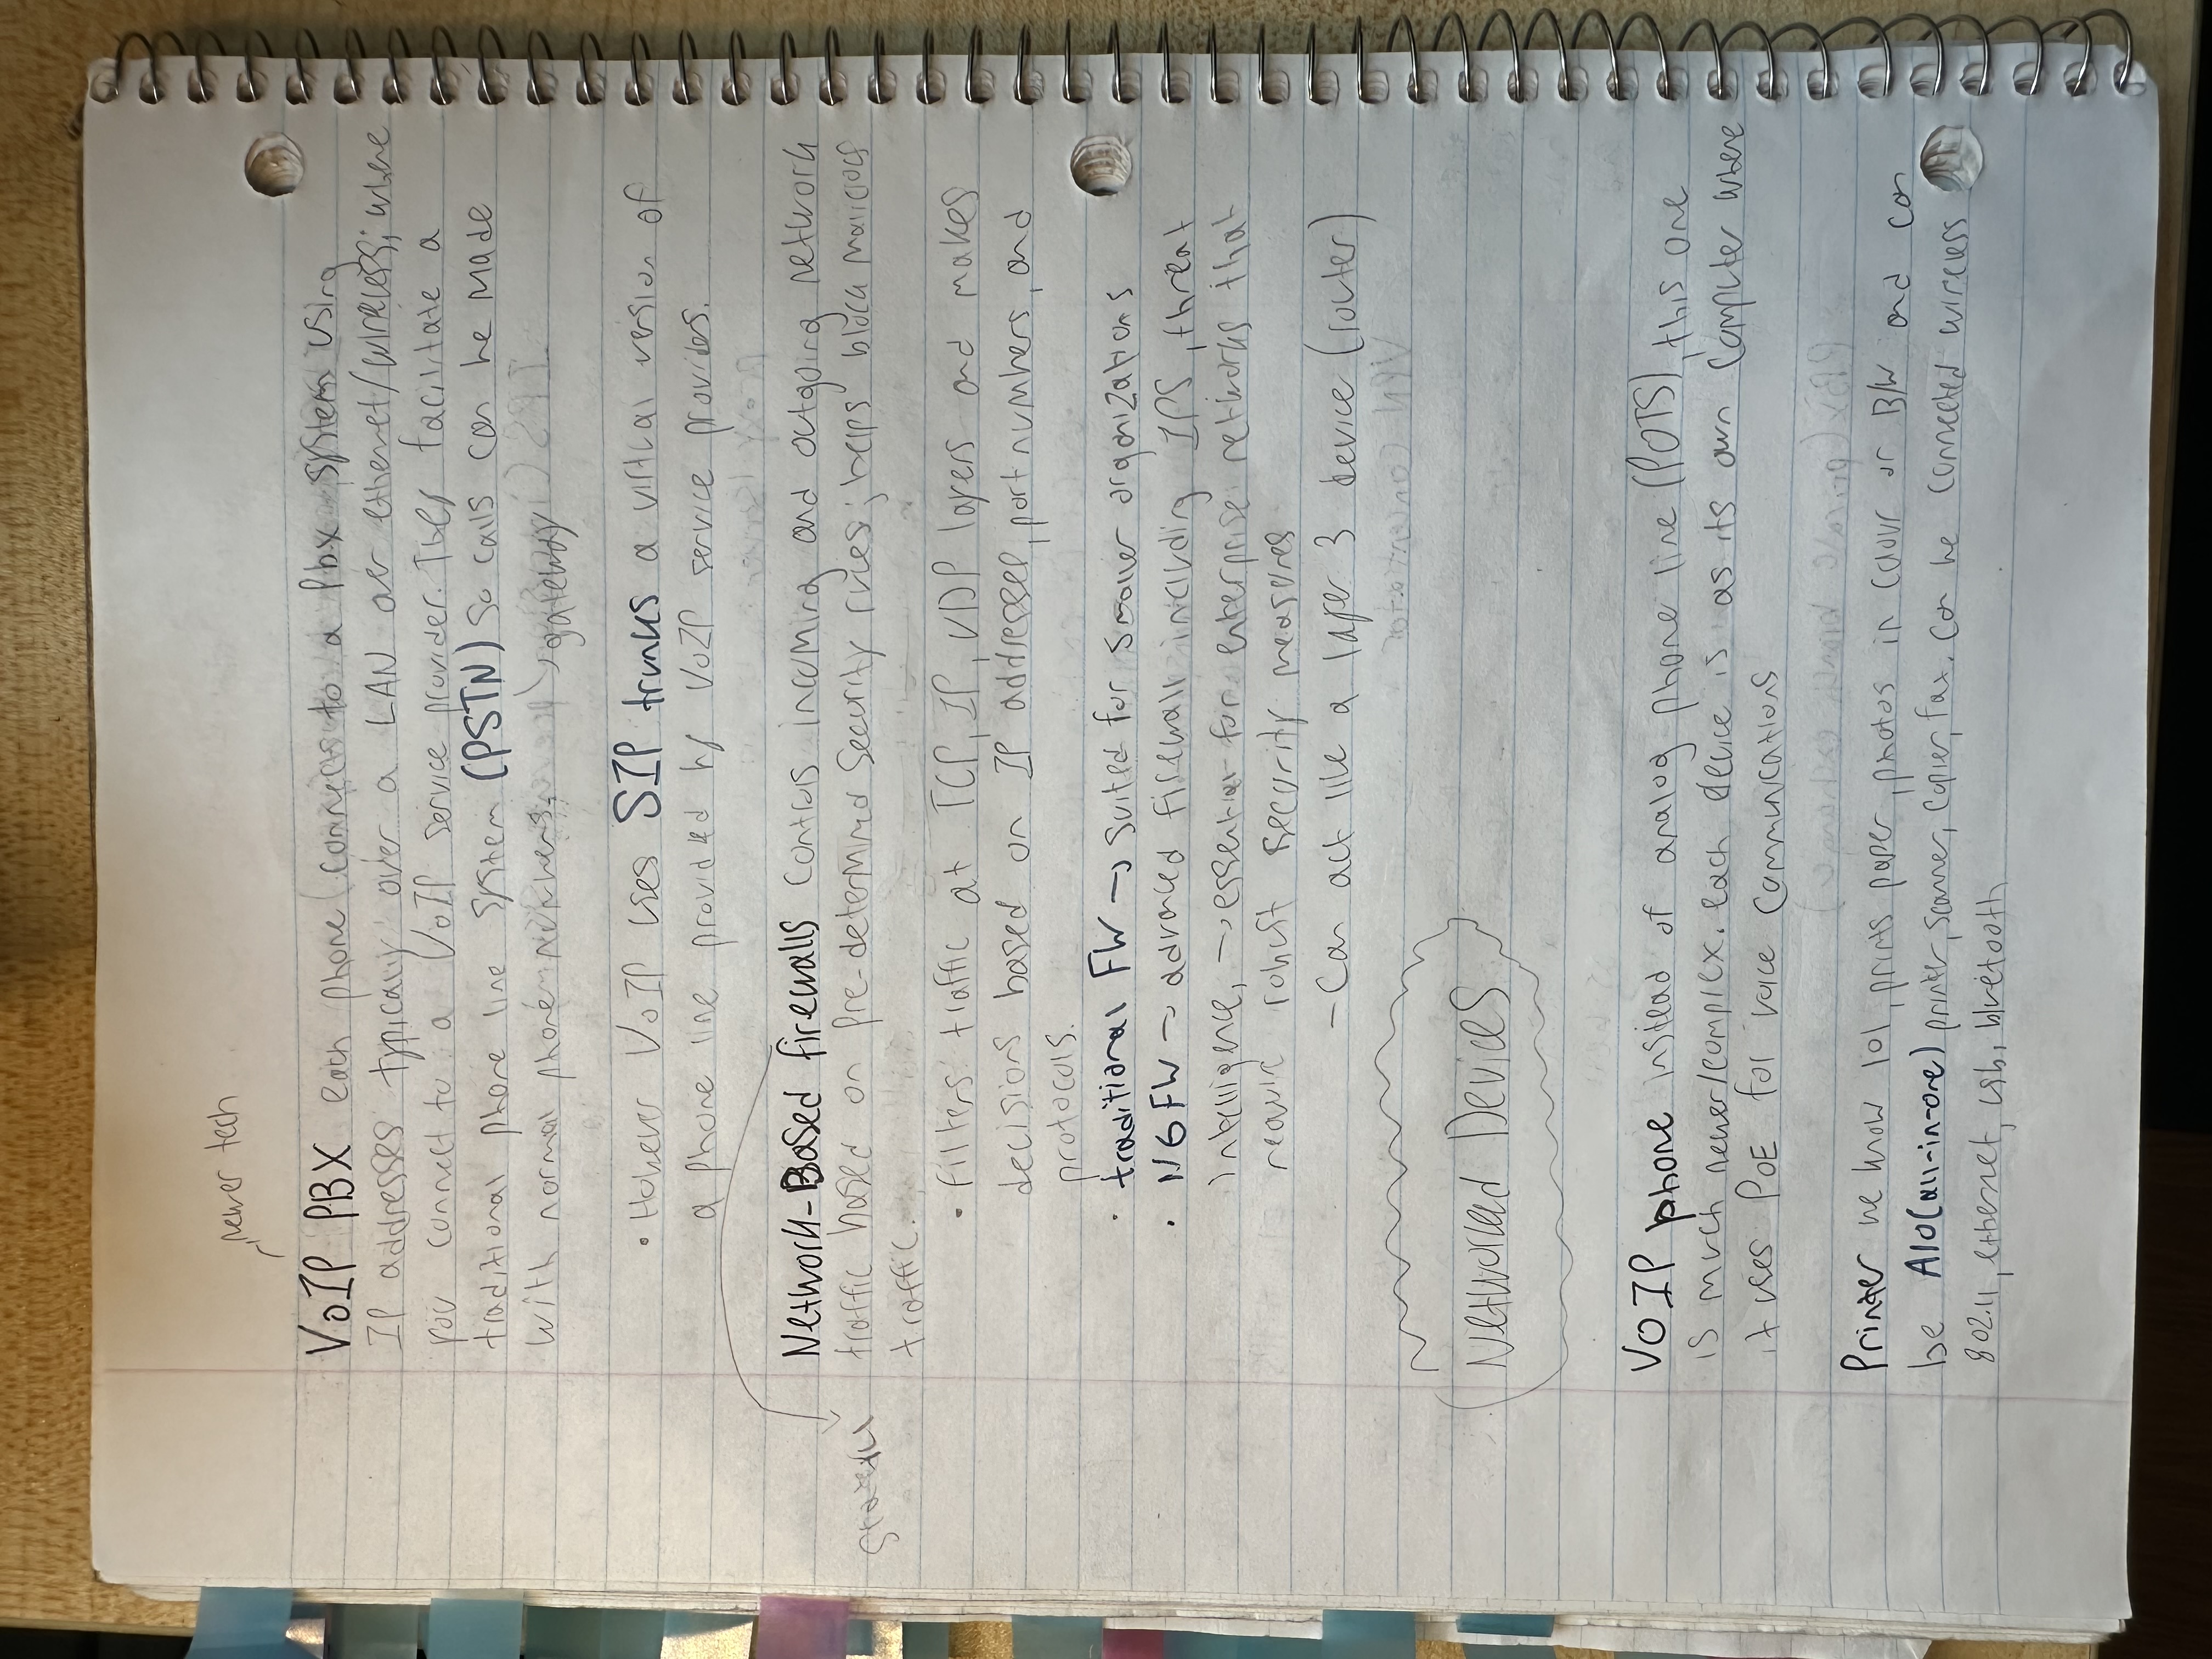 newer tech
VoIP PBX each phone connects to a Pbx system using
IP addresses typically over a LAN over ethernet/wireless; where
you connect to a VoIP service provider. They facilitate a
traditional phone line system (PSTN) so calls can be made
with normal phone numbers.
gateway
• However VoIP uses SIP trunks a virtual version of
a phone line provided by VoIP service providers.
Network-Based firewalls controls incoming and outgoing network
stateful
traffic based on Pre-determined security rules; helps block malicious
traffic.
• filters traffic at TCP, IP, UDP layers and makes
decisions based on IP addresses, port numbers, and
protocols.
• traditional FW → suited for smaller organizations
• NGFW → advanced firewall including IPS, threat
intelligence, → essential for enterprise networks that
require robust security measures
- Can act like a layer 3 device (router)
Networked Devices
VOIP phone instead of analog phone line (POTS), this one
is much newer/complex. each device is as its own computer where
it uses PoE for voice communications
Printer we know lol, prints paper, photos in colour or B/W and can
be AIO(all-in-one) printer, scanner, copier, fax. can be connected wireless
802.11, ethernet, usb, bluetooth